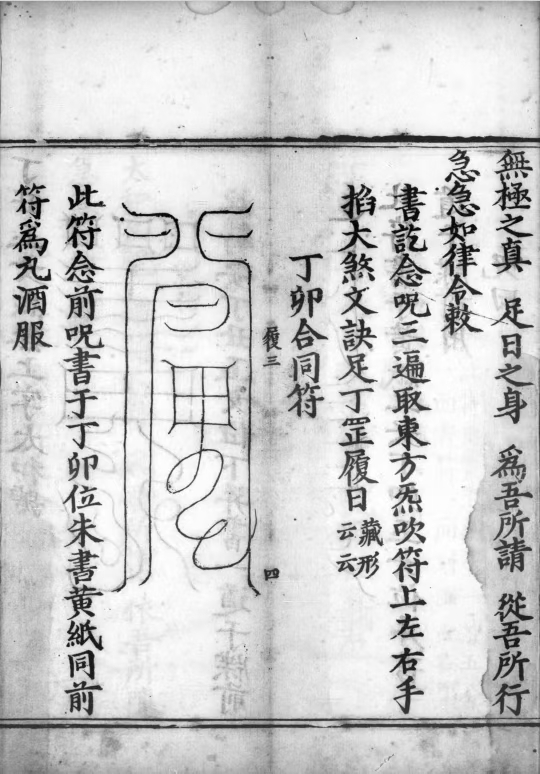 無極之真　足日之身　爲吾所請　從吾所行
急急如律令敕
書訖念呪三遍取東方炁吹符上左右手
掐大煞文訣足丁罡履日藏形云云
丁卯合同符
履三
四
此符念前呪書于丁卯位朱書黄紙同前
符爲丸酒服